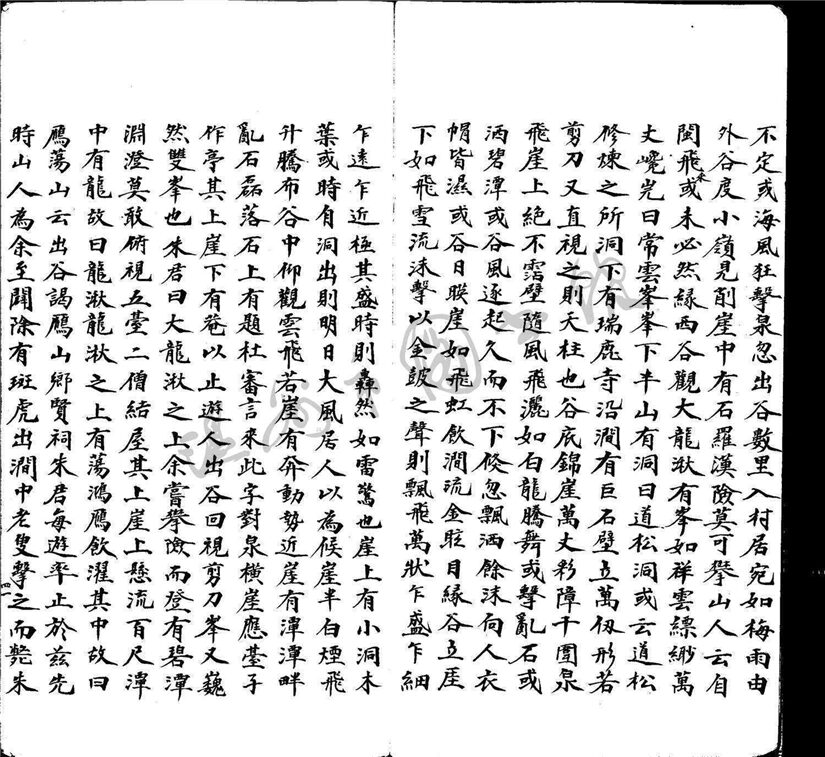 不定或海風狂擊泉忽出谷數里入村居宛如梅雨由
外谷度小嶺見削崖中有石羅漢險莫可攀山人云自
閩飛來或未必然緣西谷觀大龍湫有峯如群雲縹緲萬
丈巉岏曰常雲峯峯下半山有洞曰道松洞或云道松
修煉之所洞下有瑞鹿寺沿澗有巨石壁立萬仭形若
剪刀又直視之則天柱也谷底錦崖萬丈彩障千圍泉
飛崖上絕不霑壁隨風飛灑如白龍騰舞或擊亂石或
洒碧潭或谷風逐起久而不下倐忽飄洒餘沫向人衣
帽皆濕或谷日暎崖如飛虹飲澗流金眩目緣谷立厓
下如飛雪流沫擊以金鼓之聲則飄飛萬狀乍盛乍細
乍遠乍近極其盛時則轟然如雷驚也崖上有小洞木
葉或時自洞出則明日大風居人以為候崖半白煙飛
升騰布谷中仰觀雲飛若崖有奔動勢近崖有潭潭畔
亂石磊落石上有題杜審言來此字對泉橫崖應臺子
作亭其上崖下有菴以止遊人出谷回視剪刀峯又巍
然雙峯也朱君曰大龍湫之上余嘗攀險而登有碧潭
淵澄莫敢俯視五臺二僧結屋其上崖上懸流百尺潭
中有龍故曰龍湫龍湫之上有蕩鴻鴈飲濯其中故曰
鴈蕩山云出谷謁鴈山鄉賢祠朱君每遊率止於茲先
時山人為余至開除有斑虎出澗中老叟擊之而斃朱